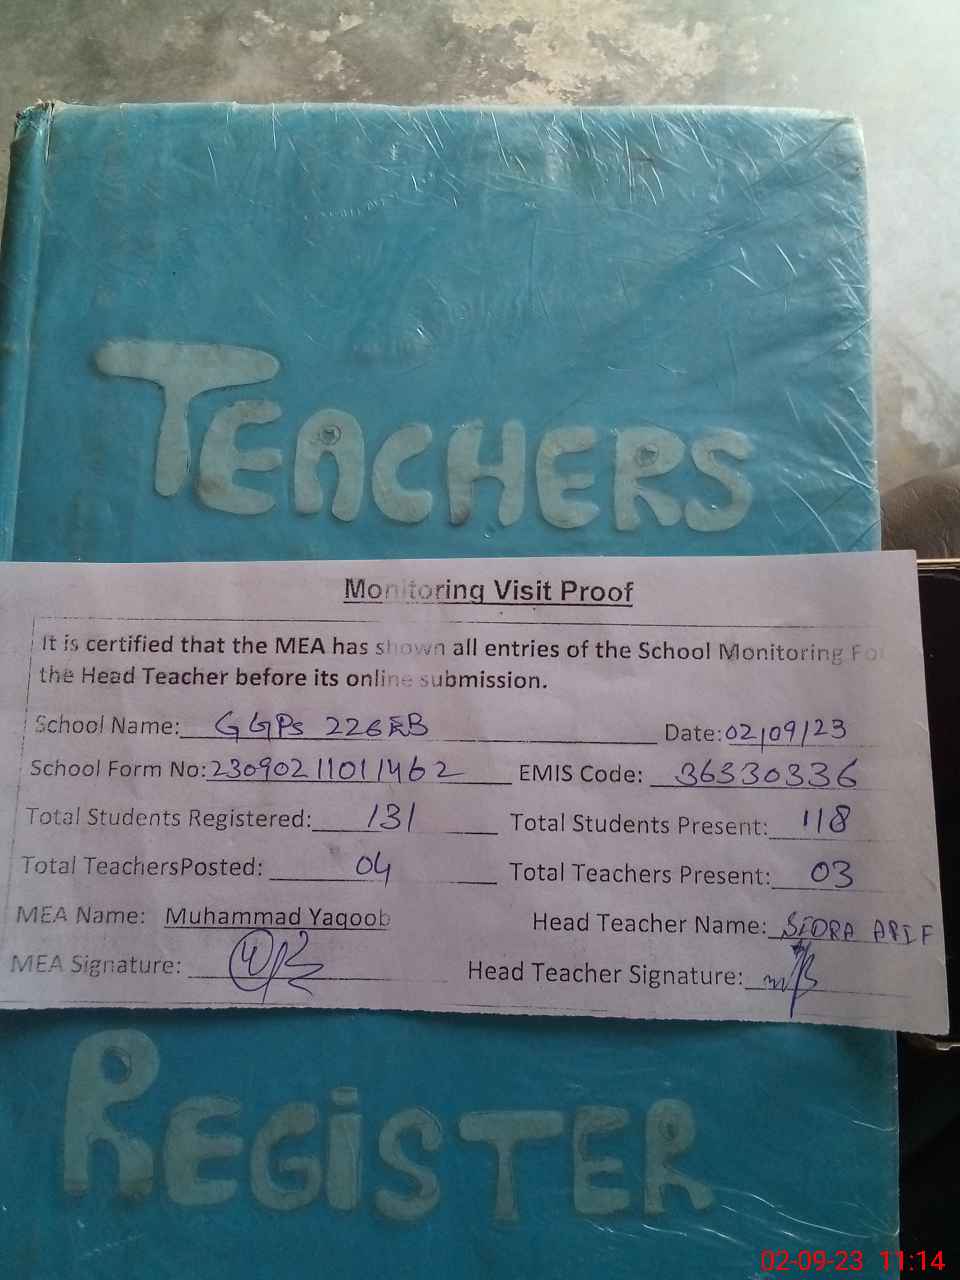 TEACHERS
Monitoring Visit Proof
It is certified that the MEA has shown all entries of the School Monitoring Fo
the Head Teacher before its online submission.
School Name: GGPS 226 EB Date: 02/09/23
School Form No: 23090211011462 EMIS Code: 36330336
Total Students Registered: 131 Total Students Present: 118
Total TeachersPosted: 04 Total Teachers Present: 03
MEA Name: Muhammad Yaqoob Head Teacher Name: SIDRA ARIF
MEA Signature: Head Teacher Signature:
REGISTER
02-09-23 11:14